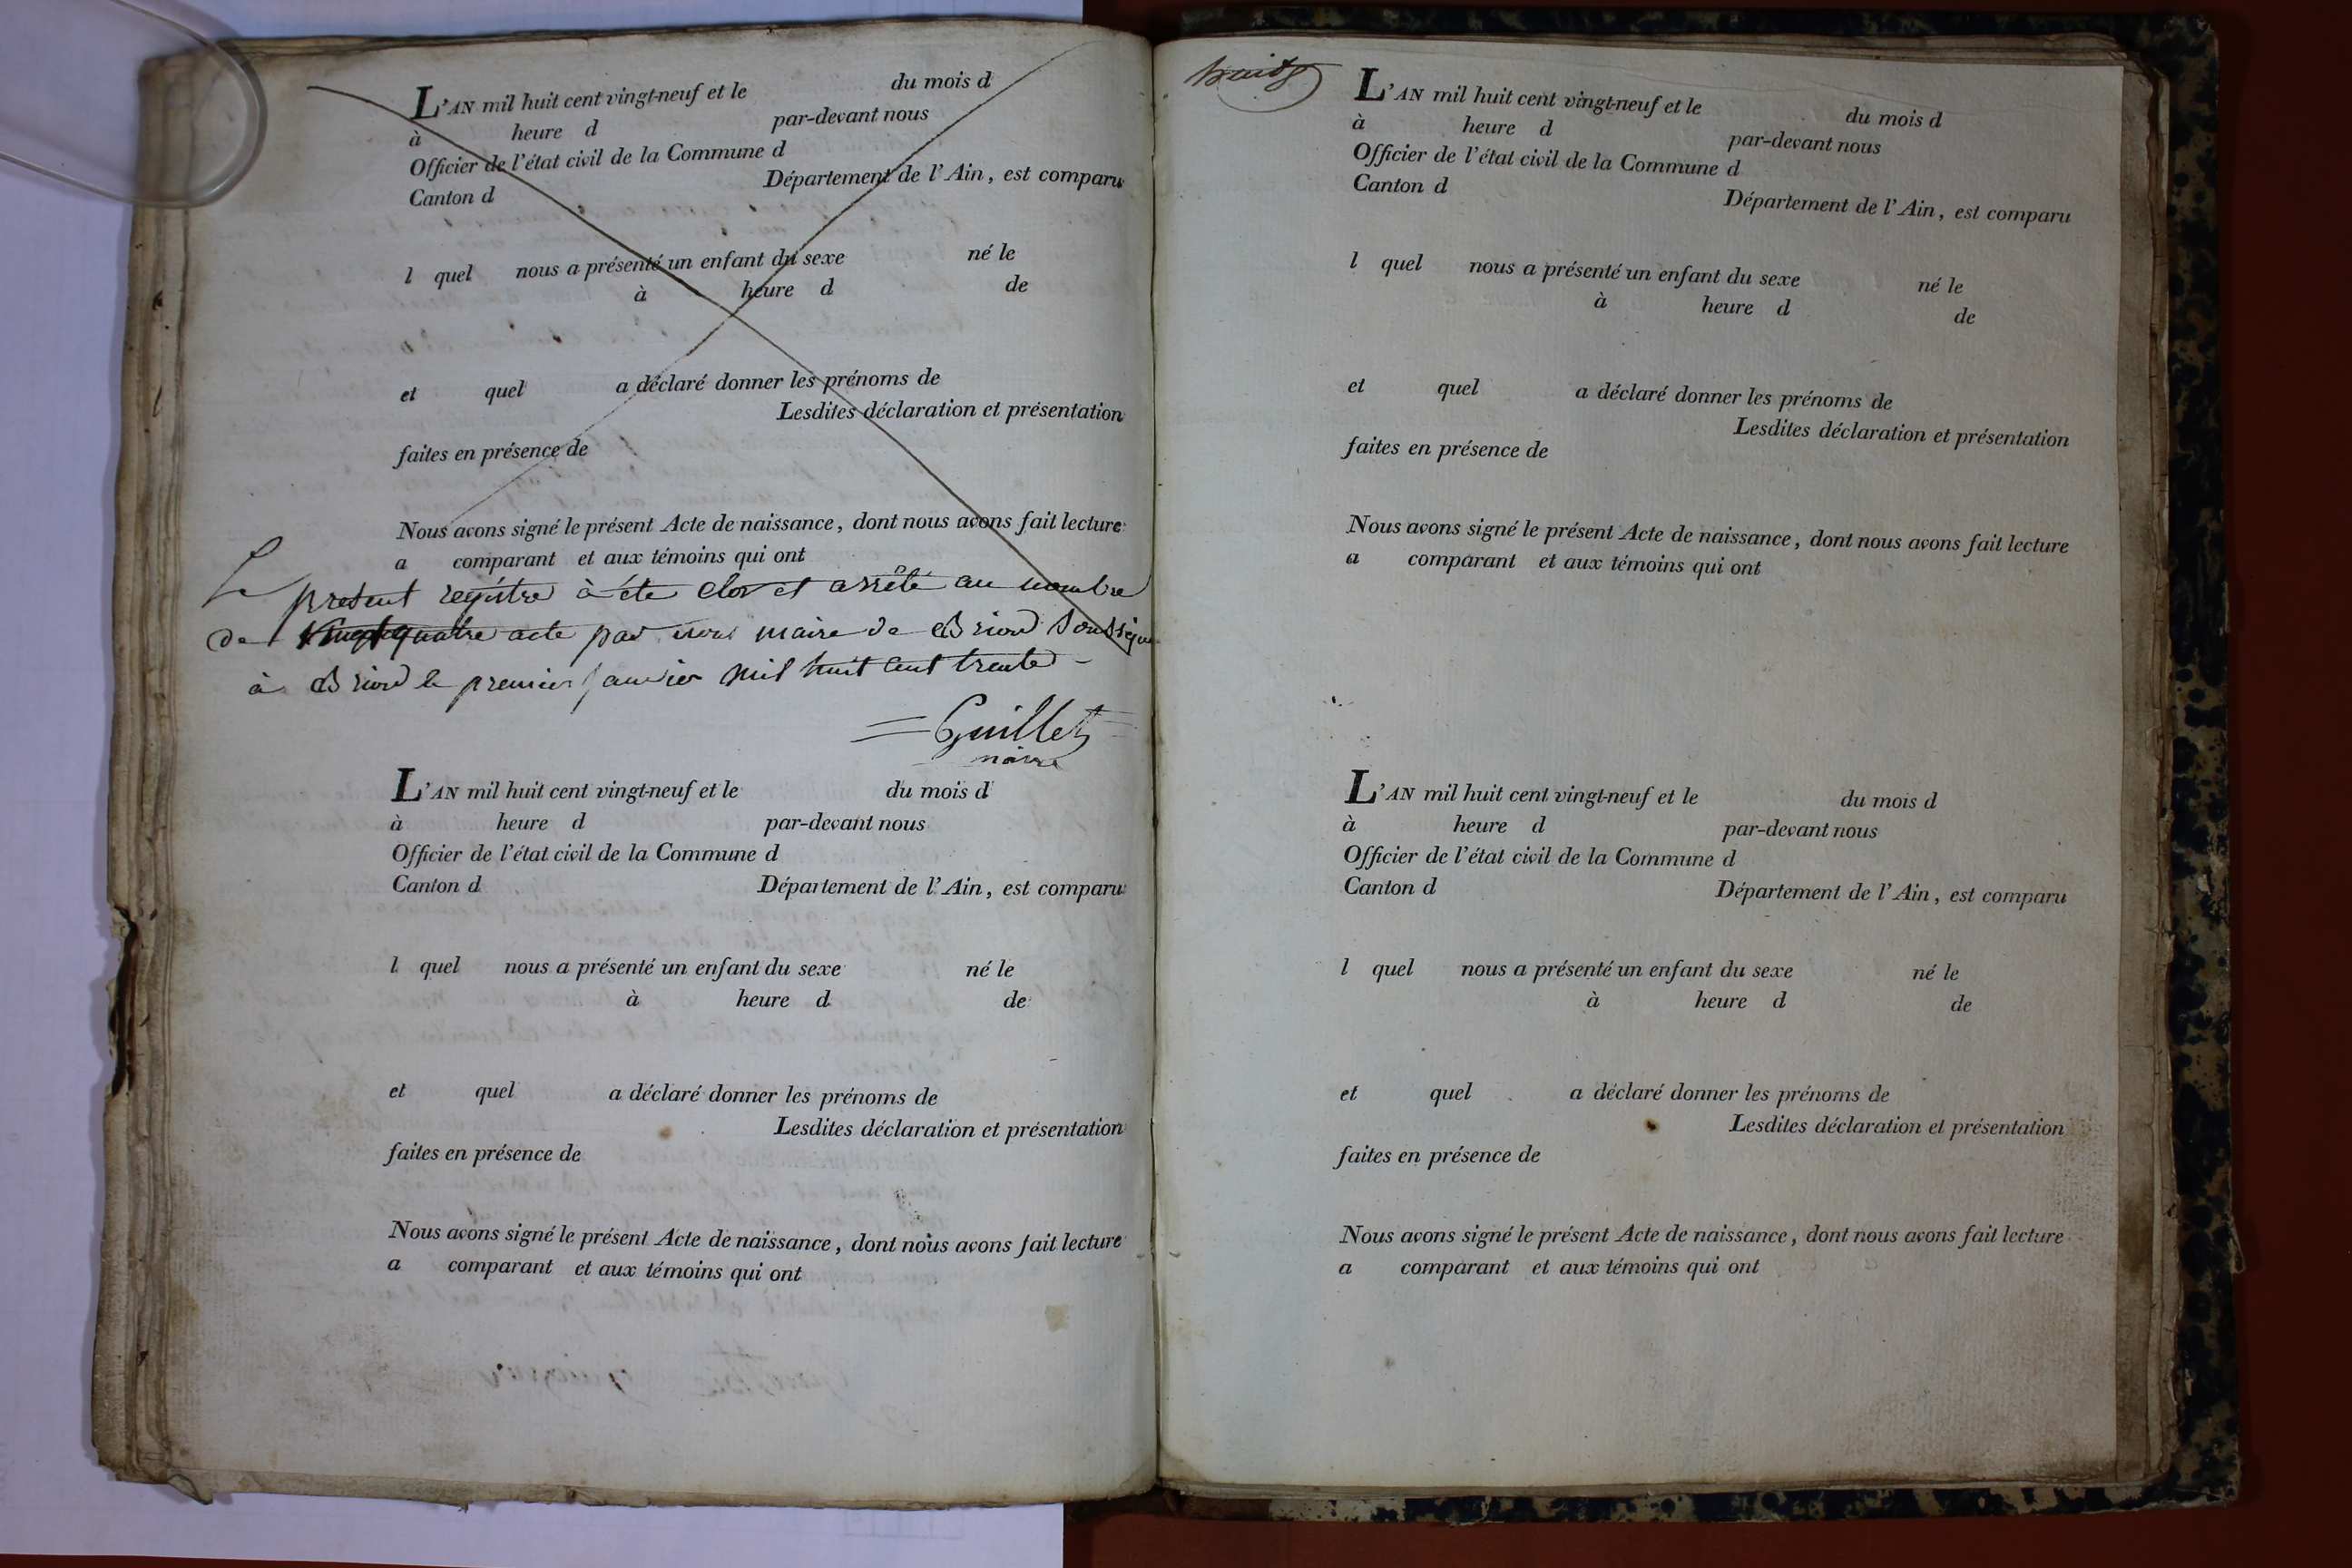 L'AN mil huit cent vingt-neuf et le du mois d
à heure d par-devant nous
Officier de l'état civil de la Commune d
Canton d Département de l'Ain, est comparu
l quel nous a présenté un enfant du sexe né le
à heure d de
et quel a déclaré donner les prénoms de
Lesdites déclaration et présentation
faites en présence de
Nous avons signé le présent Acte de naissance, dont nous avons fait lecture
a comparant et aux témoins qui ont
Le present registre à été clos et arrêté au nombre
de vingt quatre acte par nous maire de Briord Soussigné
à Briord le premier janvier mil huit cent trente
Guillet
maire
L'AN mil huit cent vingt-neuf et le du mois d
à heure d par-devant nous
Officier de l'état civil de la Commune d
Canton d Département de l'Ain, est comparu
l quel nous a présenté un enfant du sexe né le
à heure d de
et quel a déclaré donner les prénoms de
Lesdites déclaration et présentation
faites en présence de
Nous avons signé le présent Acte de naissance, dont nous avons fait lecture
a comparant et aux témoins qui ont
huit
L'AN mil huit cent vingt-neuf et le du mois d
à heure d par-devant nous
Officier de l'état civil de la Commune d
Canton d Département de l'Ain, est comparu
l quel nous a présenté un enfant du sexe né le
à heure d de
et quel a déclaré donner les prénoms de
Lesdites déclaration et présentation
faites en présence de
Nous avons signé le présent Acte de naissance, dont nous avons fait lecture
a comparant et aux témoins qui ont
L'AN mil huit cent vingt-neuf et le du mois d
à heure d par-devant nous
Officier de l'état civil de la Commune d
Canton d Département de l'Ain, est comparu
l quel nous a présenté un enfant du sexe né le
à heure d de
et quel a déclaré donner les prénoms de
Lesdites déclaration et présentation
faites en présence de
Nous avons signé le présent Acte de naissance, dont nous avons fait lecture
a comparant et aux témoins qui ont